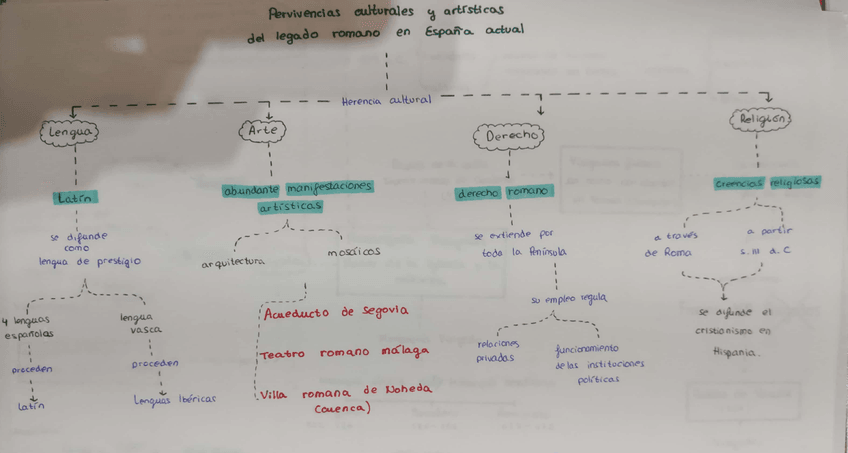 Pervivencias culturales y artísticas
del legado romano en España actual
Herencia cultural
Lengua
Arte
Derecho
Religión
Latín
abundante manifestaciones
artísticas
derecho romano
creencias religiosas
se difunde
como
lengua de prestigio
arquitectura
mosáicos
se extiende por
toda la Península
a través
de Roma
a partir
s. III d. C
4 lenguas
españolas
lengua
vasca
Acueducto de Segovia
Teatro romano málaga
Villa romana de Noheda
Cuenca)
su empleo regula
relaciones
privadas
funcionamiento
de las instituciones
políticas
se difunde el
cristianismo en
Hispania.
proceden
proceden
Latín
Lenguas Ibéricas